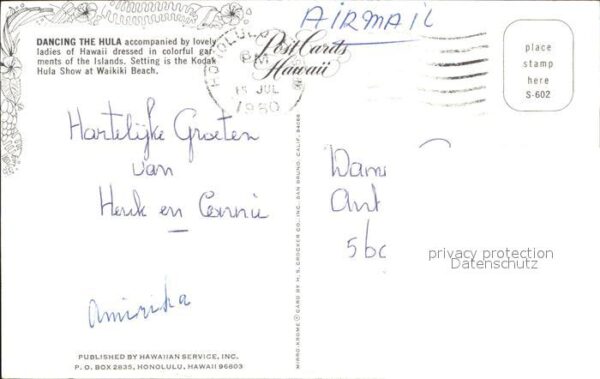 AIRMAIL
DANCING THE HULA accompanied by lovely
ladies of Hawaii dressed in colorful gar-
ments of the Islands. Setting is the Kodak
Hula Show at Waikiki Beach.
HONOLULU
PM
JUL
1980
Post Cards
Hawaii
place
stamp
here
S-602
Hartelijke Groeten
van
Henk en Connie
Amirika
MIRRO-KROME ® CARD BY H. S. CROCKER CO., INC. SAN BRUNO, CALIF. 94066
privacy protection
Datenschutz
PUBLISHED BY HAWAIIAN SERVICE, INC.
P. O. BOX 2835, HONOLULU, HAWAII 96803